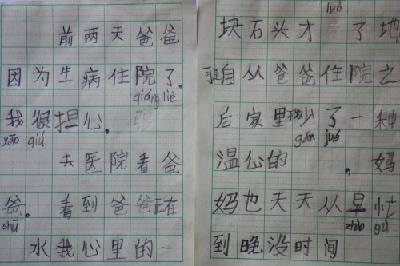 前两天爸爸
因为生病住院了。
qiáng liè
我很担心。
去医院看爸
爸。看到爸爸正在
shū
水我心里的一
luò
块石头才 了地
自从爸爸住院之
后家里缺少了一种
gǎn jué
温心的 ,妈
妈也天天从早忙
zhào gù
到晚没时间